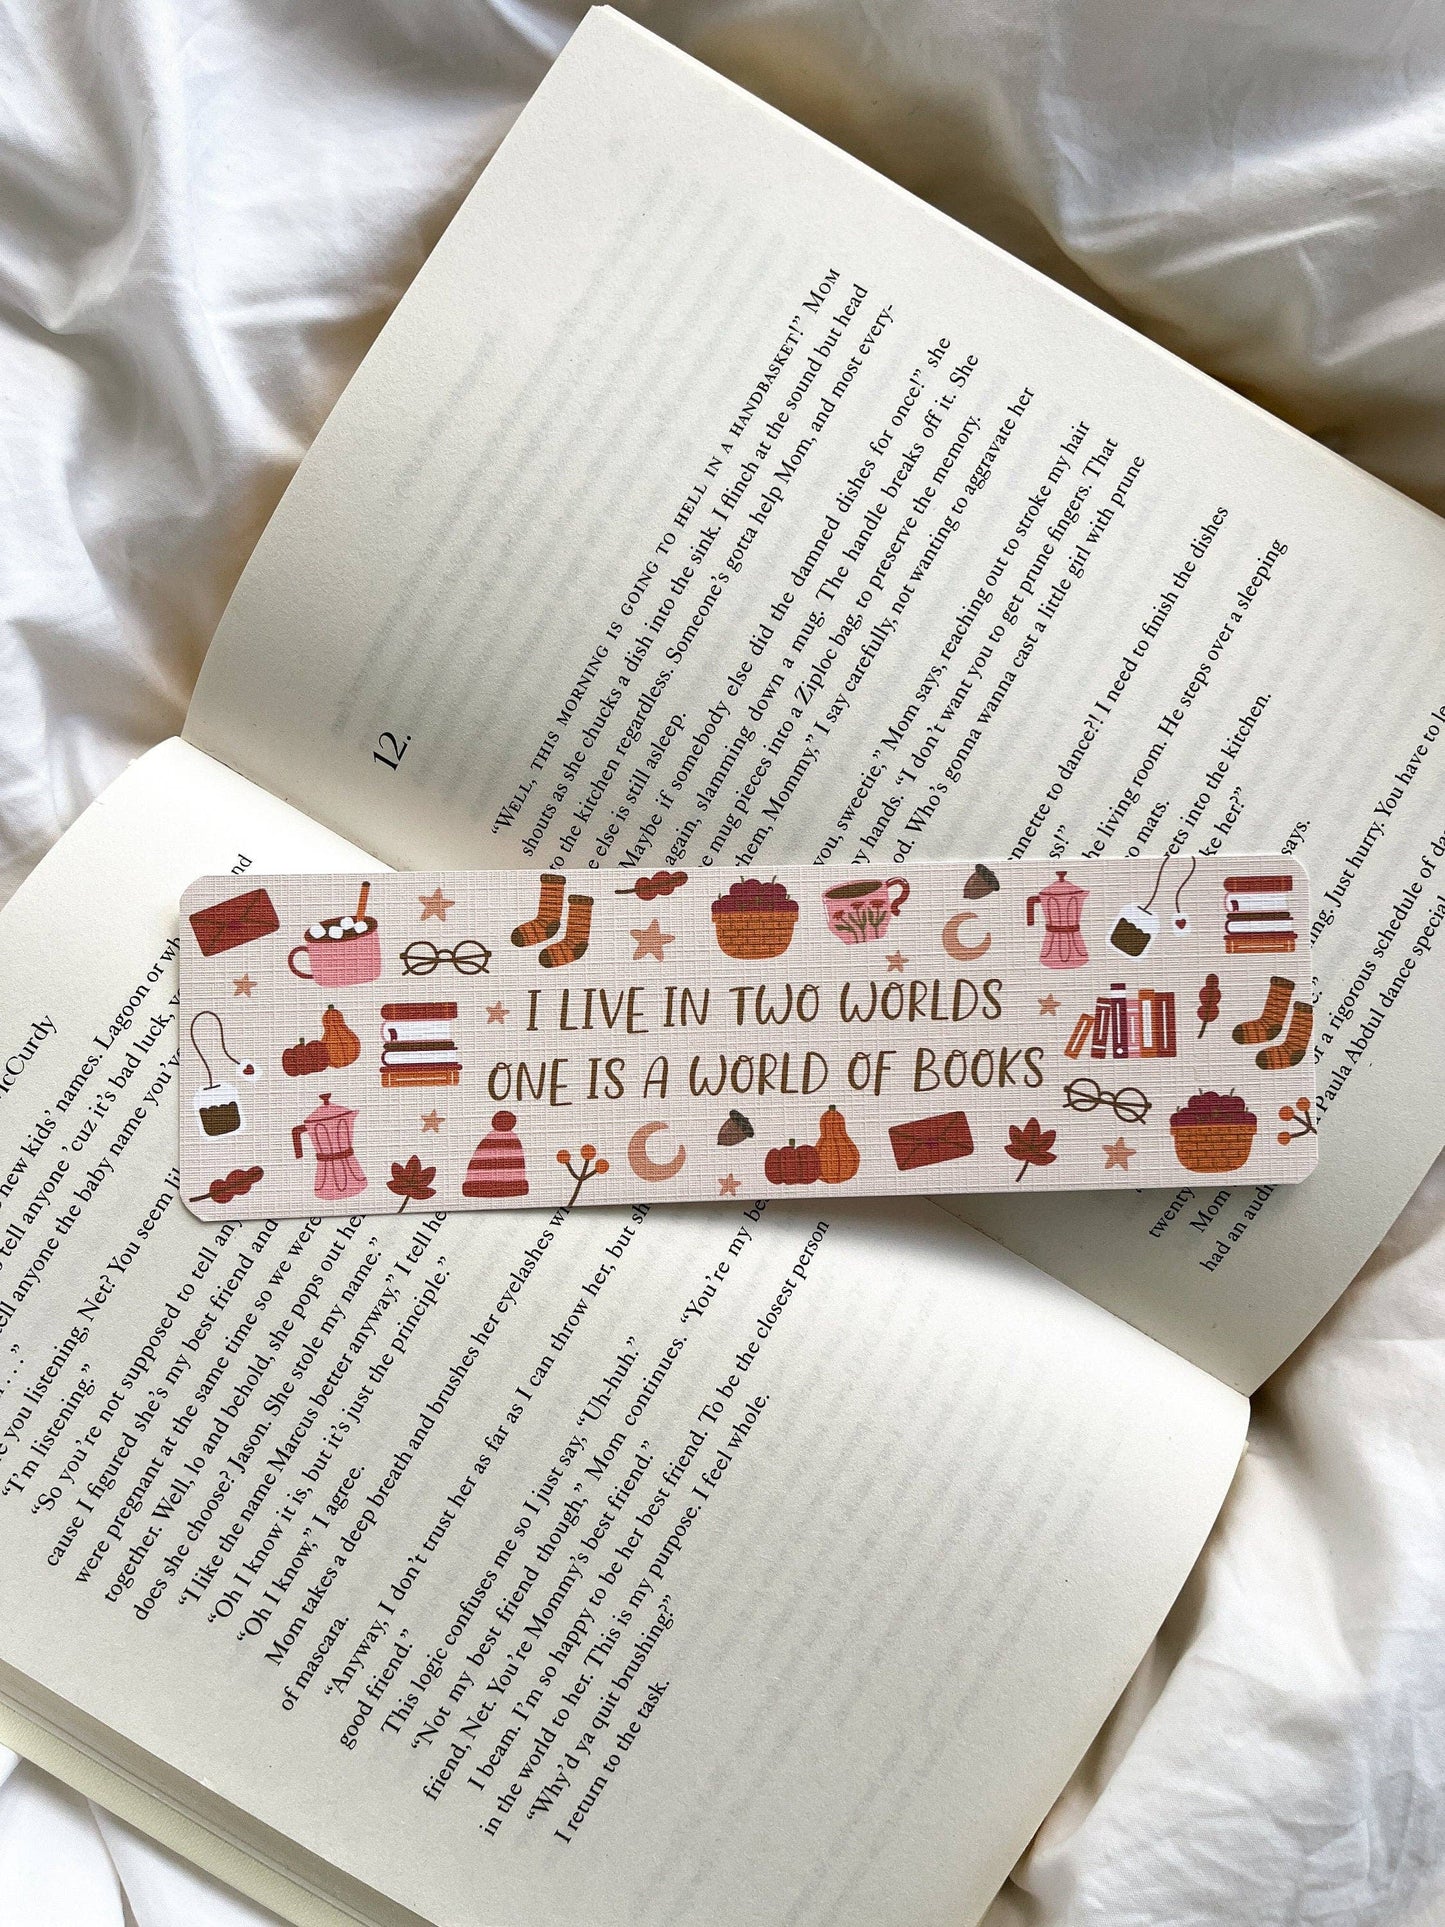 cCurdy
new kids' names. Lagoon or wh
tell anyone 'cuz it's bad luck, y
tell anyone the baby name you've
..."
you listening, Net? You seem li
"I'm listening."
"So you're not supposed to tell any
cause I figured she's my best friend and
were pregnant at the same time so we were
together. Well, lo and behold, she pops out her
does she choose? Jason. She stole my name."
"I like the name Marcus better anyway," I tell he
"Oh I know it is, but it's just the principle."
"Oh I know," I agree.
Mom takes a deep breath and brushes her eyelashes wi
of mascara.
"Anyway, I don't trust her as far as I can throw her, but sh
good friend."
This logic confuses me so I just say, "Uh-huh."
"Not my best friend though," Mom continues. "You're my be
friend, Net. You're Mommy's best friend."
I beam. I'm so happy to be her best friend. To be the closest person
in the world to her. This is my purpose. I feel whole.
"Why'd ya quit brushing?"
I return to the task.
I LIVE IN TWO WORLDS
ONE IS A WORLD OF BOOKS
12.
"WELL, THIS MORNING IS GOING TO HELL IN A HANDBASKET!" MOM
shouts as she chucks a dish into the sink. I flinch at the sound but head
to the kitchen regardless. Someone's gotta help Mom, and most every-
e else is still asleep.
Maybe if somebody else did the damned dishes for once!" she
again, slamming down a mug. The handle breaks off it. She
e mug pieces into a Ziploc bag, to preserve the memory.
hem, Mommy," I say carefully, not wanting to aggravate her
you, sweetie," Mom says, reaching out to stroke my hair
py hands. "I don't want you to get prune fingers. That
od. Who's gonna wanna cast a little girl with prune
nnette to dance?! I need to finish the dishes
ss!"
he living room. He steps over a sleeping
o mats.
rets into the kitchen.
ke her?"
says.
ing. Just hurry. You have to le
e."
or a rigorous schedule of da
Paula Abdul dance special
twenty
Mom
had an audi